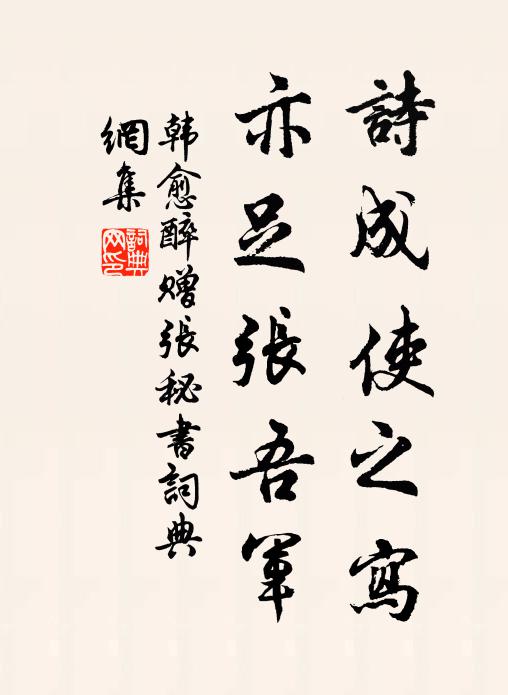 詩成使之寫
亦足張吾軍
韓愈醉贈張秘書詞典
網集
詞典
网印